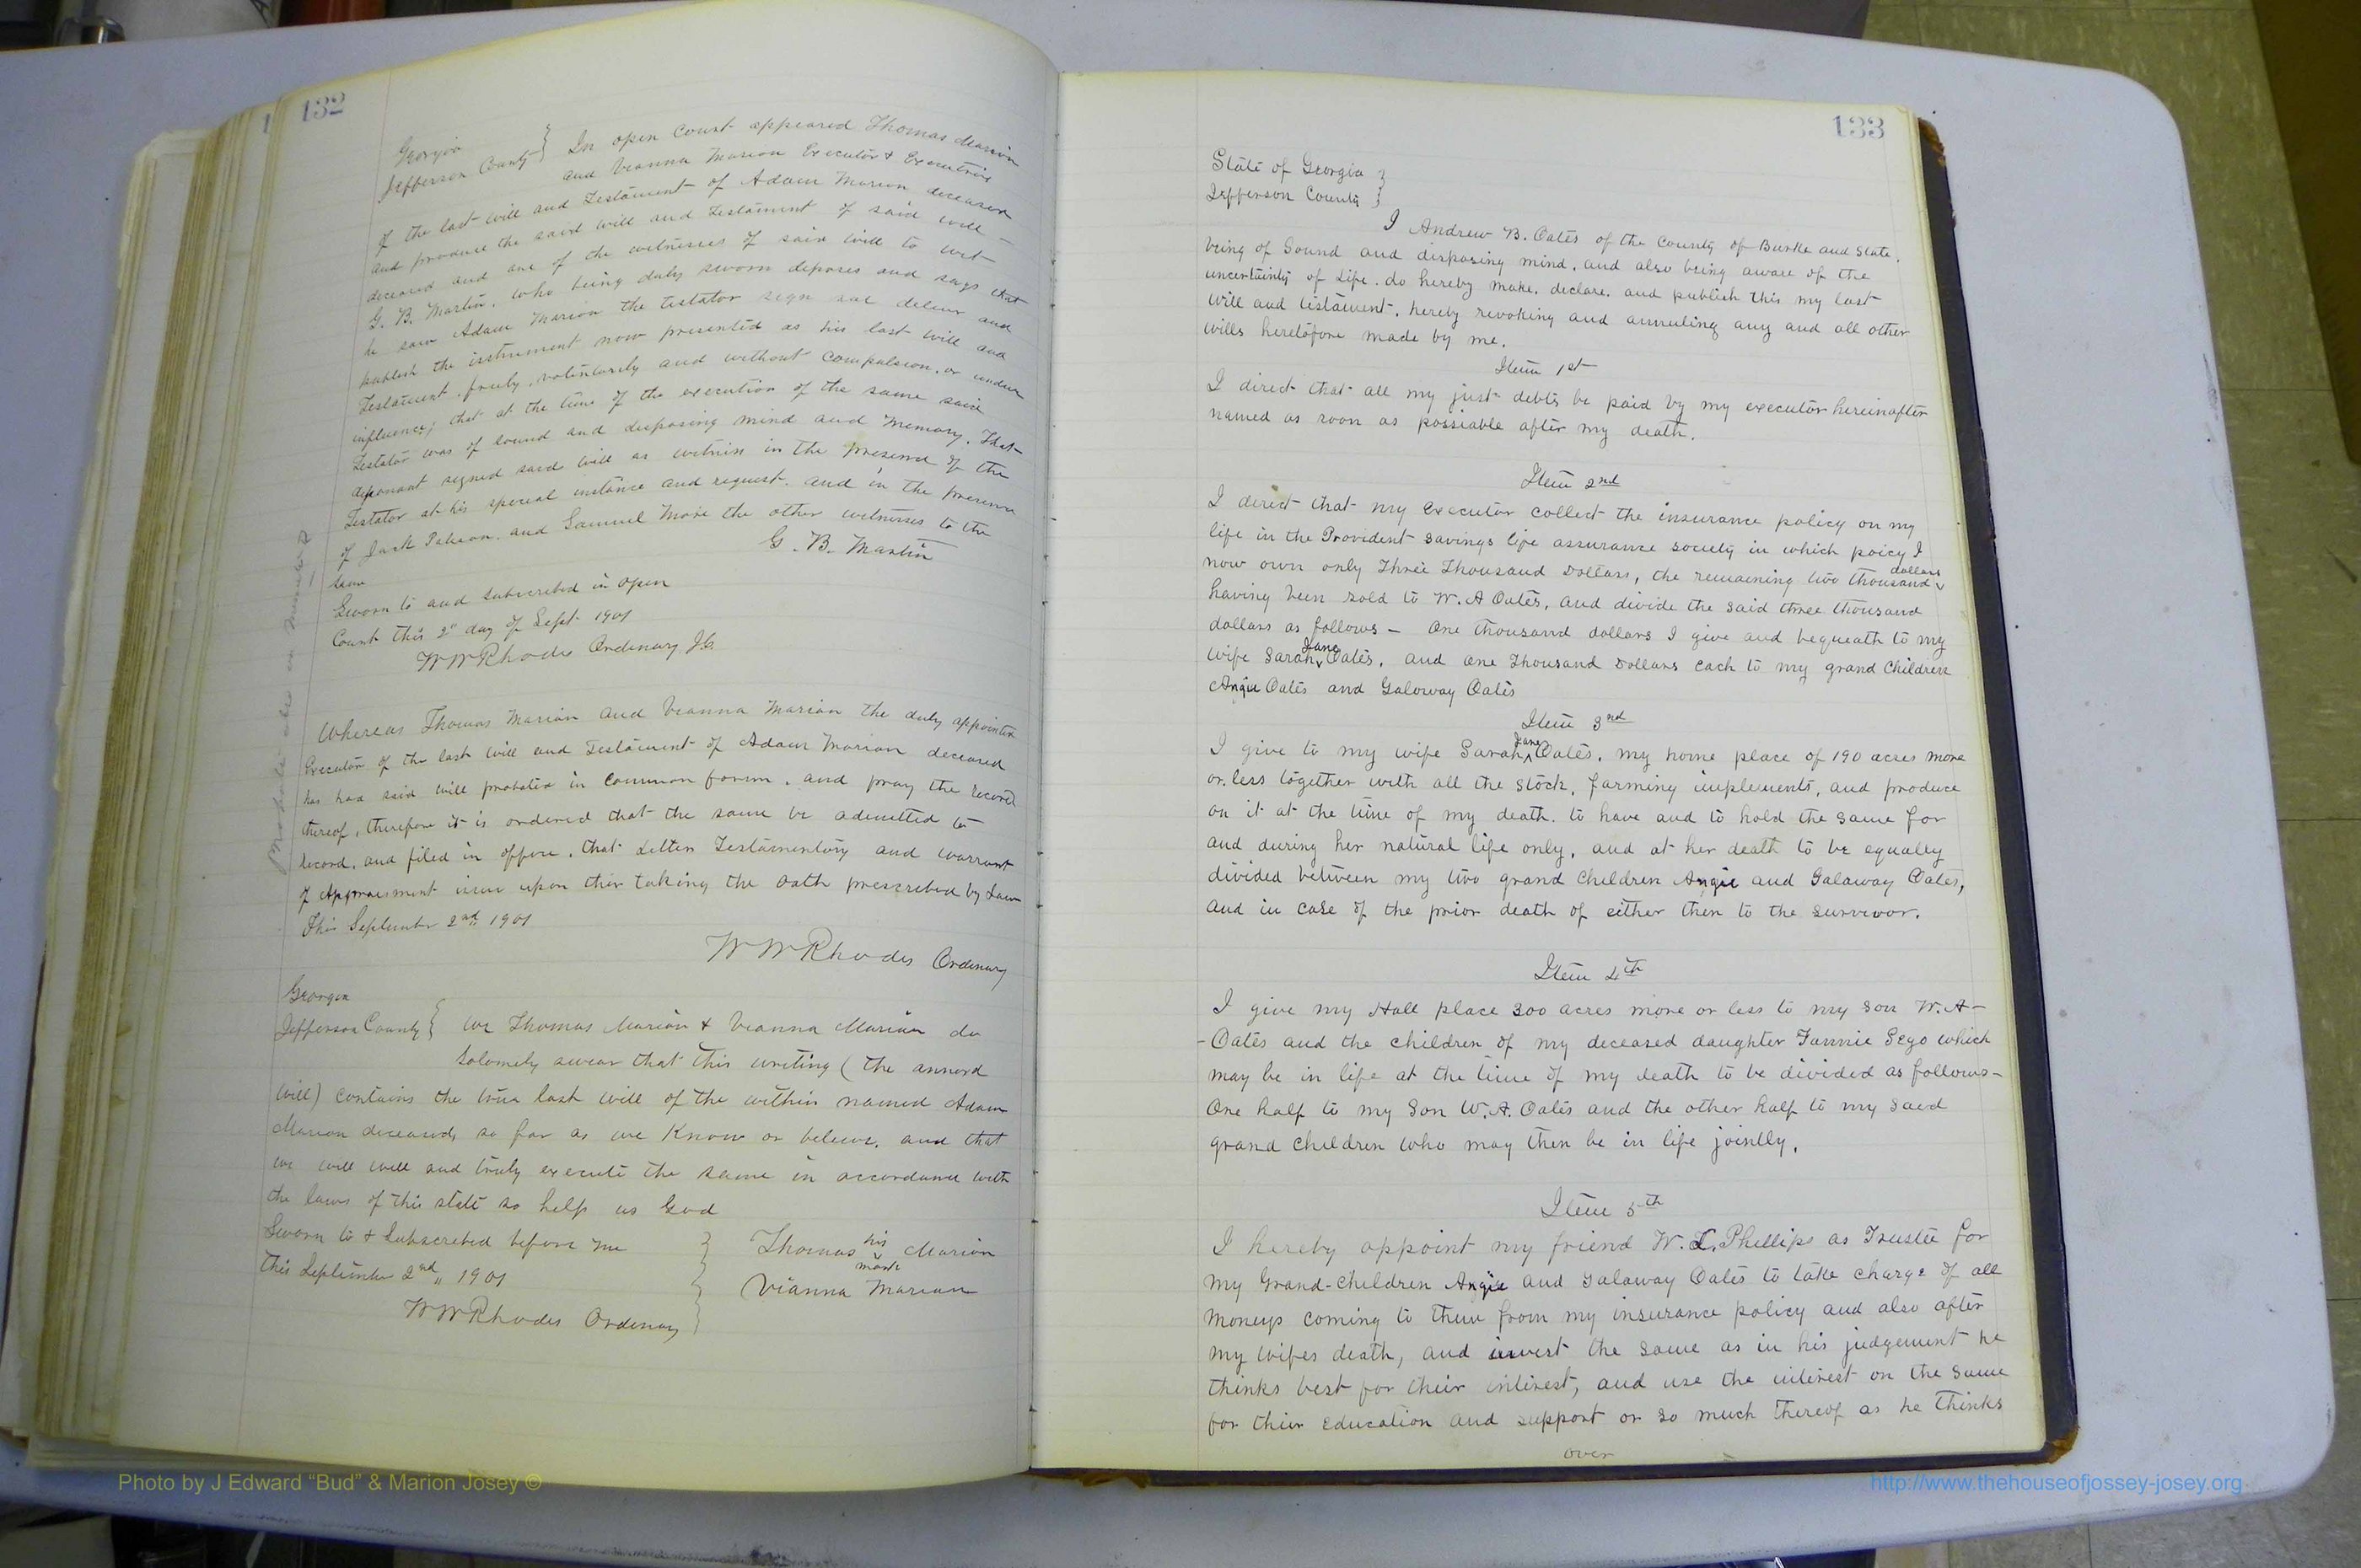 132
Georgia
Jefferson County } In open Court appeared Thomas Marion
and Vianna Marion Executor & Executrix
of the last will and Testament of Adam Marion deceased
and produce the said will and Testament of said will –
deceased and one of the witnesses of said will to wit
G. B. Martin. who being duly sworn deposes and says that
he saw Adam Marion the testator sign and
publish the instrument now presented as his last will and
Testament, freely, voluntarily and without compulsion, or undue
influence; that at the time of the execution of the same said
Testator was of sound and disposing mind and memory. That
deponant signed said will as witness in the presence of the
Testator at his special instance and request. and in the presence
of Jack and Samuel More the other witnesses to the
same
G. B. Martin
Sworn to and subscribed in open
Court this 2" day of Sept 1901
W W Rhodes Ordinary J.C.
Whereas Thomas Marion and Vianna Marion the duly appointed
Executor of the last will and Testament of Adam Marion deceased
has had said will probated in Common form. and pray the record
thereof, therefore it is ordered that the same be admitted to
record, and filed in office, that Letters Testamentory and warrant
of Appraisment issue upon their taking the oath prescribed by Law
This September 2nd 1901
W W Rhodes Ordinary
Georgia
Jefferson County } We Thomas Marion & Vianna Marion do
Solomnly swear that this writing (the annexd
Will) contains the true last will of the within named Adam
Marion deceased, so far as we Know or believe, and that
we will well and truly execute the same in accordance with
the laws of this state so help us God
Sworn to & Subscribed before me
this September 2nd " 1901
W W Rhodes Ordinary
Thomas his mark Marion
Vianna Marion
133
State of Georgia }
Jefferson County }
I Andrew B. Oates of the County of Burke and State.
being of Sound and disposing mind, and also being aware of the
uncertainty of Life. do hereby make, declare, and publish this my last
Will and testament, hereby revoking and annuling any and all other
wills heretofore made by me.
Item 1st
I direct that all my just debts be paid by my executor hereinafter
named as soon as possiable after my death.
Item 2nd
I direct that my Executor collect the insurance policy on my
life in the Provident Savings life assurance society in which poicy I
now own only Three Thousand Dollars, the remaining two thousand dollars
having been sold to W. A Oates, and divide the said three thousand
dollars as follows – One thousand dollars I give and bequeath to my
wife Sarah Jane Oates, and One Thousand Dollars each to my grand Children
Angie Oates and Galoway Oates
Item 3nd
I give to my wife Sarah Jane Oates, my home place of 190 acres more
or less together with all the stock, farming implements, and produce
on it at the time of my death. to have and to hold the same for
and during her natural life only, and at her death to be equally
divided between my two grand Children Angie and Galaway Oates,
and in case of the prior death of either then to the survivor.
Item 4th
I give my Hall place 300 acres more or less to my son W. A–
–Oates and the children of my deceased daughter Fannie Sego which
may be in life at the time of my death to be divided as follows–
One half to my Son W. A. Oates and the other half to my said
grand children who may then be in life joinlly.
Item 5th
I hereby appoint my friend W. L. Phillips as Trustee for
my Grand-Children Angie and Galaway Oates to take charge of all
moneys coming to them from my insurance policy and also after
my wifes death, and invest the same as in his judgement he
thinks best for their interest, and use the interest on the same
for thier Education and support or so much thereof as he thinks
over
Photo by J Edward “Bud” & Marion Josey ©
http://www.thehouseofjossey-josey.org